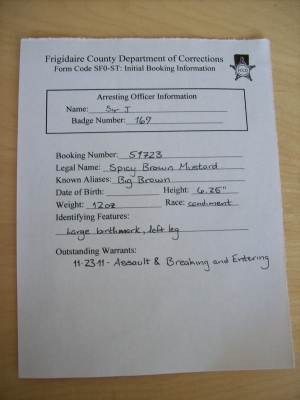 Frigidaire County Department of Corrections
Form Code SF0-ST: Initial Booking Information
FCCD
Arresting Officer Information
Name: Sir J
Badge Number: 169
Booking Number: 51723
Legal Name: Spicy Brown Mustard
Known Aliases: Big Brown
Date of Birth: Height: 6.25"
Weight: 12oz Race: condiment
Identifying Features:
Large birthmark, left leg
Outstanding Warrants:
11-23-11 - Assault & Breaking and Entering